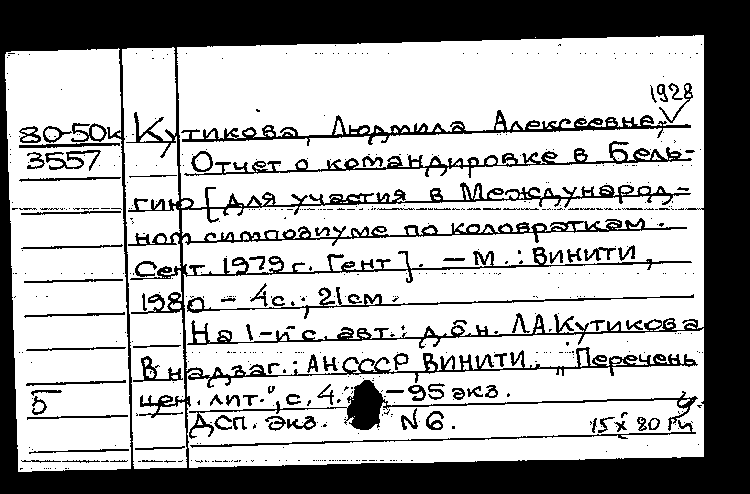 1928
80-50к Кутикова, Людмила Алексеевна,
3557 Отчет о командировке в Бель-
гию [для участия в Международ-
ном симпозиуме по коловраткам.
Сент. 1979 г. Гент]. — М.: ВИНИТИ,
1980. - 4с.; 21см.
На 1-й с. авт.: д.б.н. Л.А.Кутикова
В надзаг.: АН СССР, ВИНИТИ. „Перечень
5 цен. лит.", с. 4. -95 экз.
ДСП. Экз. N 6.
15 X 80